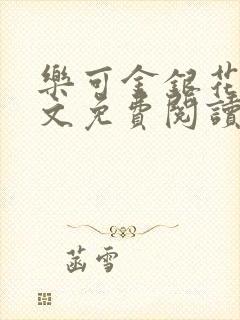 樂可金銀花
文免費閱讀
菡雪